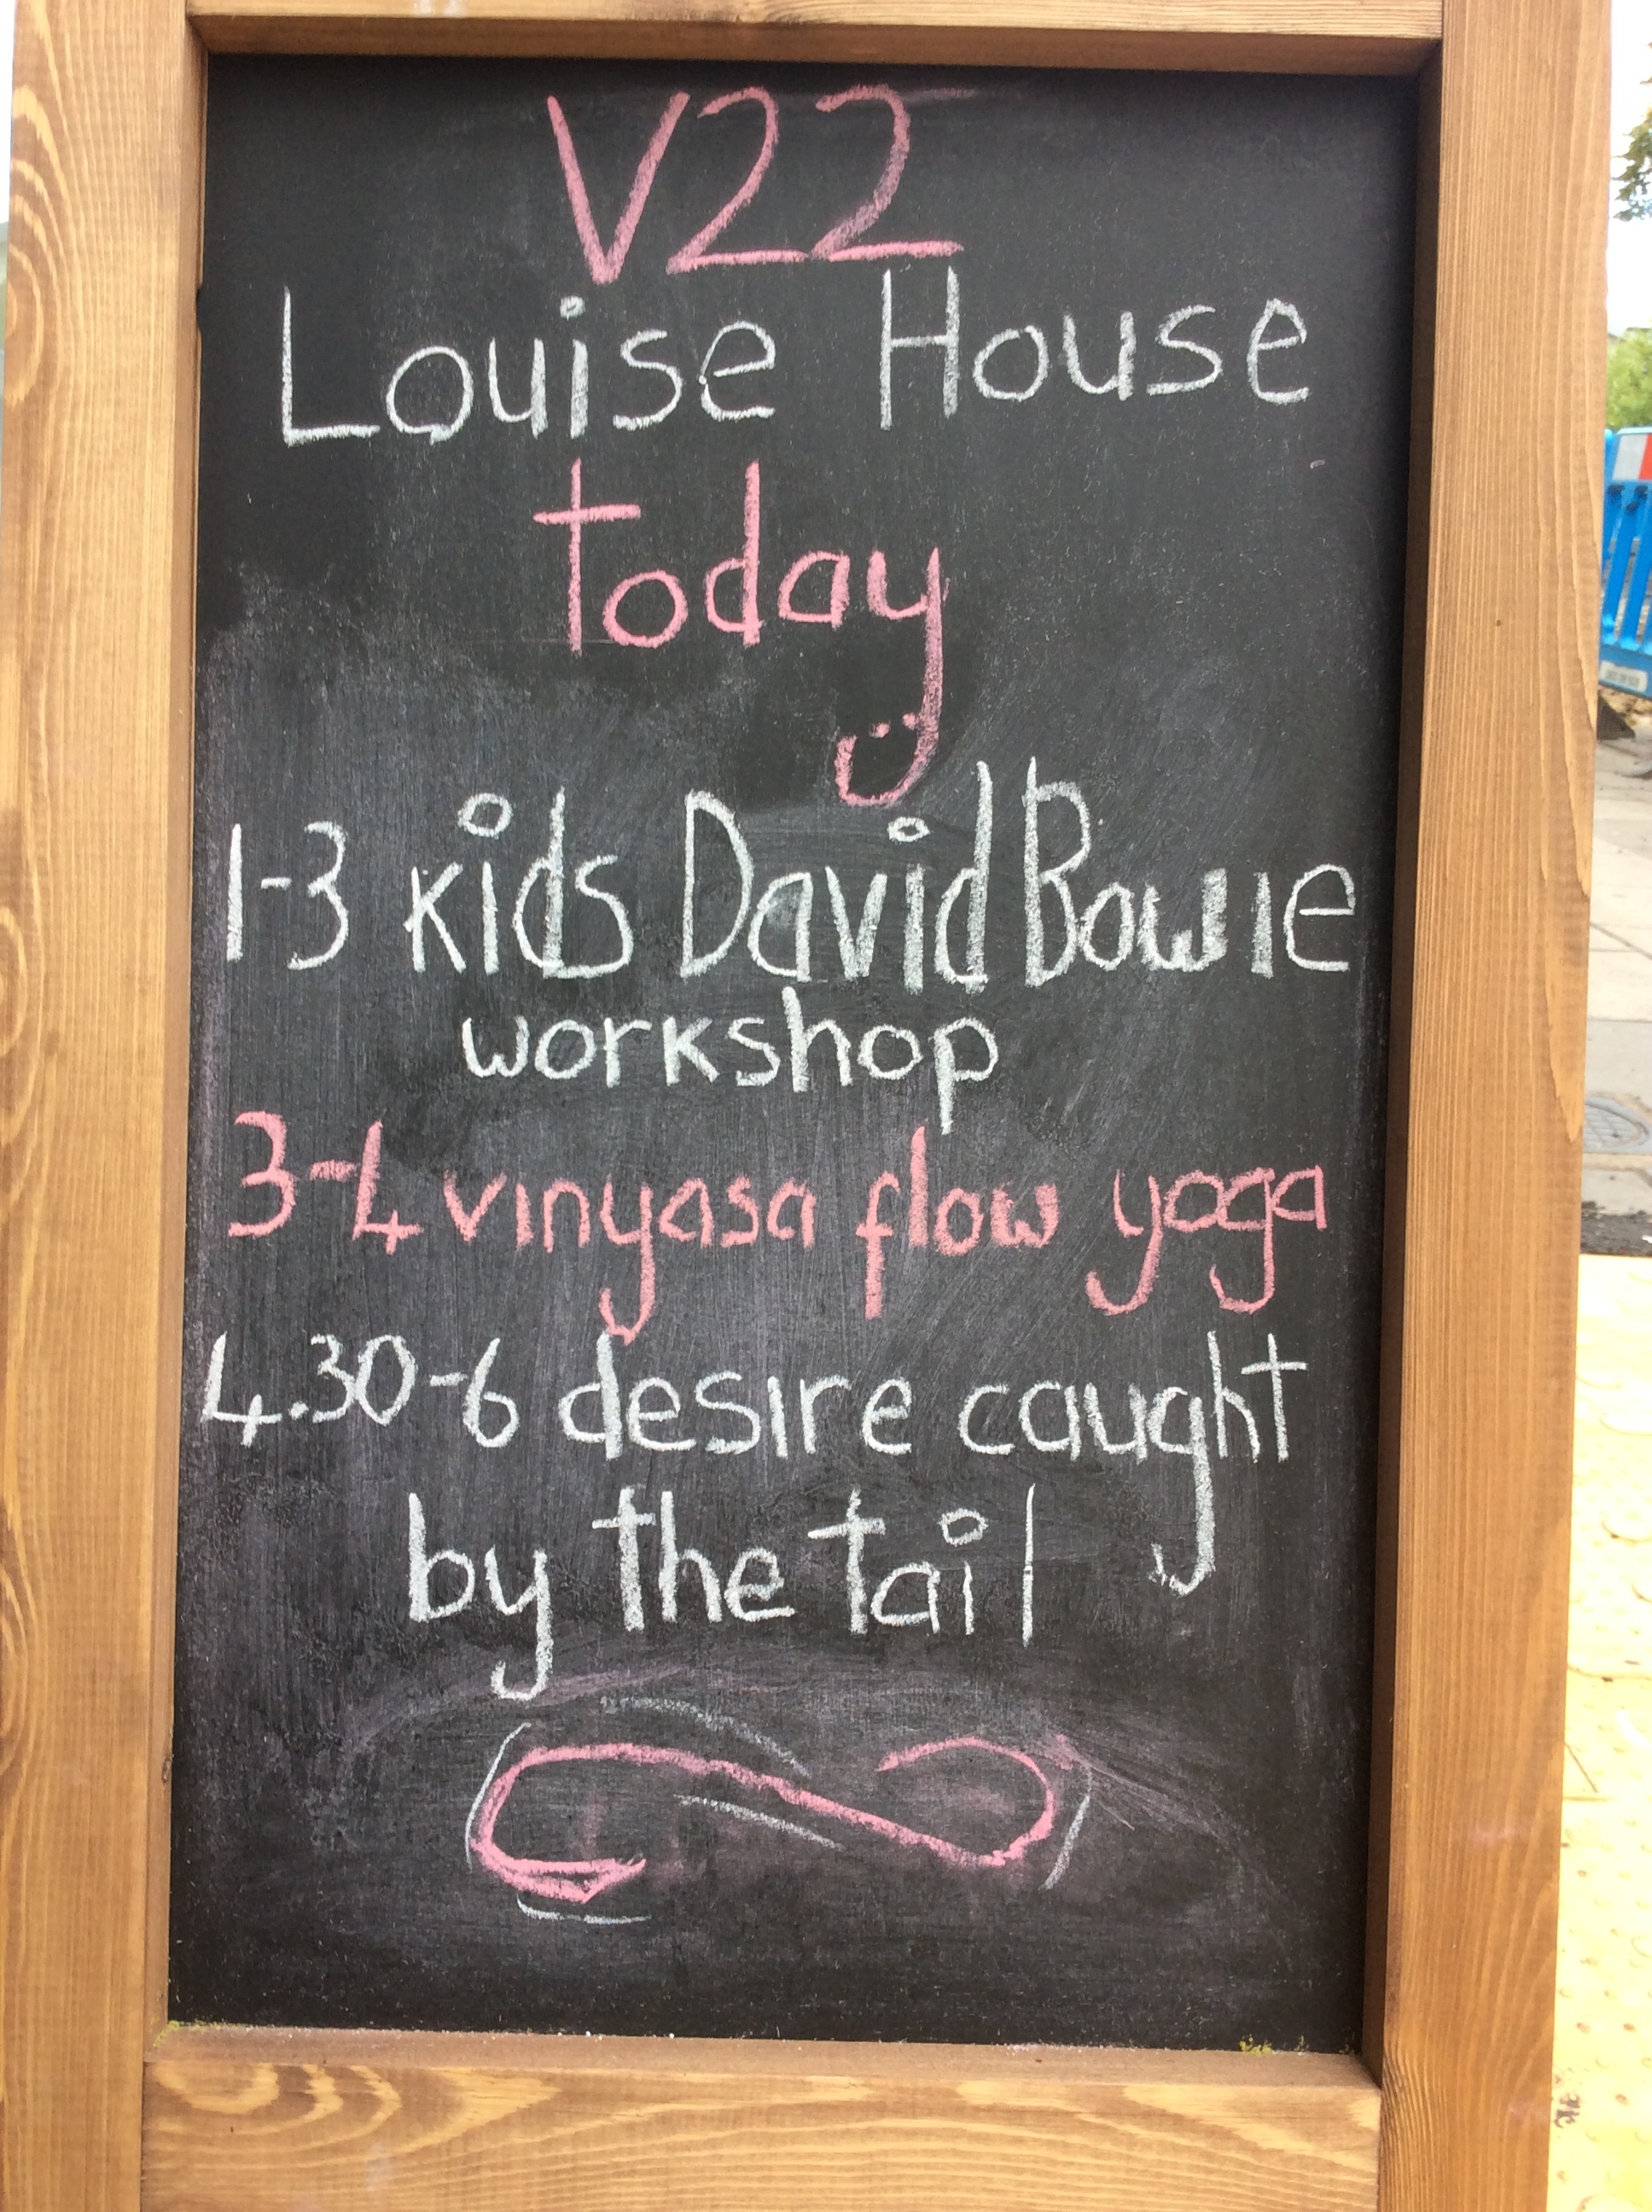 V22
Louise House
today
1-3 kids David Bowie
workshop
3-4 vinyasa flow yoga
4.30-6 desire caught
by the tail